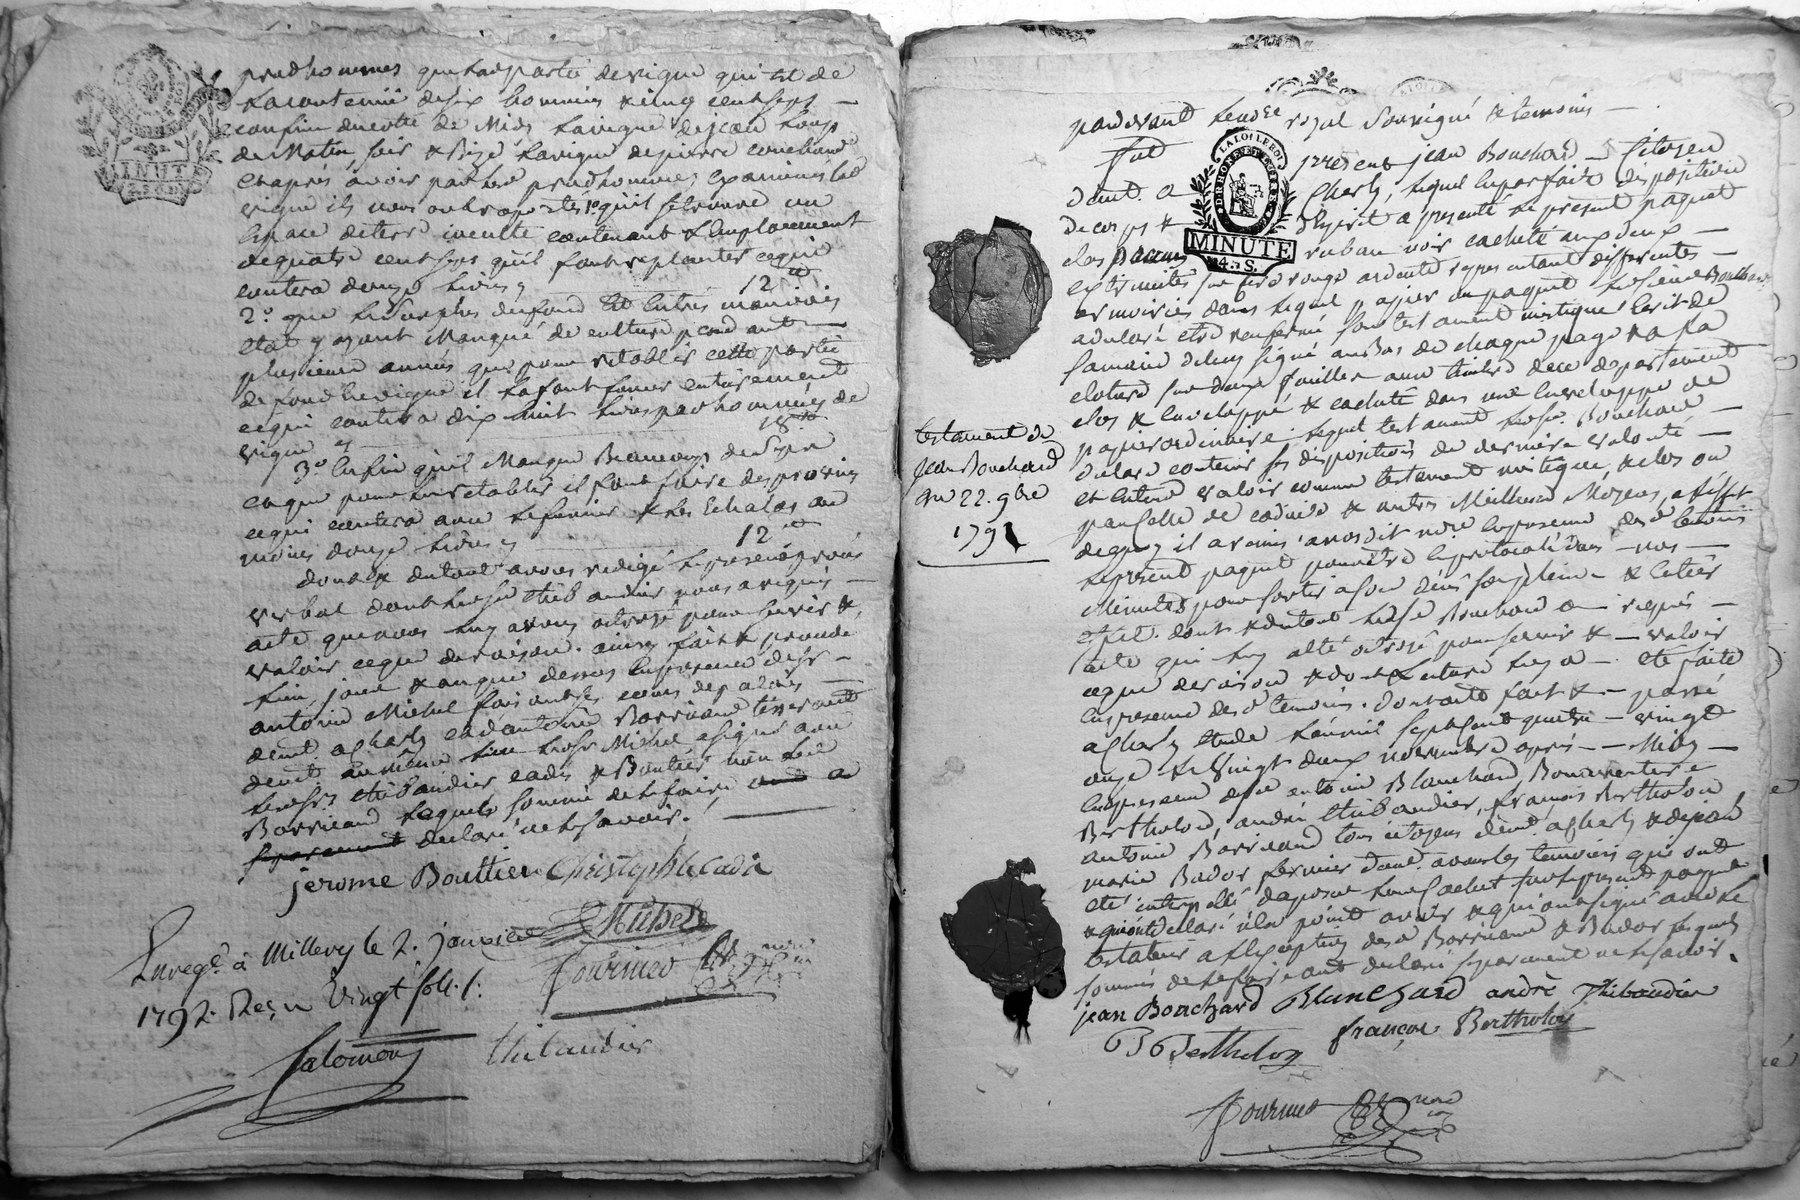 prudhommes que lad partie de vigne qui est de
la contenue de six hommées & cinq cent seps —
confine du coté de Midy la vigne de jean Loup
de Matin soir & Bize la vigne de pierre couchoud
et après avoir par les prudhommes examinés lad
vigne ils nous ont raportés 1° quil se trouve un
espace de terre inculte contenant l'emplacement
de quatre cent seps qu'il faut replanter ce qui
coutera douze livres 12
2° que le surplus du fond est en tres mauvais
etat y ayant Manqué de culture pendant
plusieurs années que pour retablir cette partie
de fond de vigne il la faut fumer entierement
ce qui coutera dix huit livres par hommées de
vigne 18
3° Enfin qu'il Manque Beaucoup de seps
et que pour les retablir il faut faire des provins
ce qui coutera avec le fumier & les Echalas au
moins douze livres 12
dont & du tout avons redigé le present procès
verbal dont led sr thibaudier nous a requis
acte que nous luy avons octroyé pour servir &
valoir ce que de raison. ainsy fait & procédé
lieu, jour & an que dessus en presence de sr
antoine Michel
demt a Charly et d'antoine Barricand tisserand
demt au même lieu led sr Michel a signé avec
les srs thibaudier cadix & Boutier non led
Barricand lequel sommé de le faire a
separement declaré ne le savoir.
jerome Bouttier Christophle Cadix
Michel
Enregé à Millery le 2. janvier
Fournier
1792. Reçu Vingt sols.
Salomon
thibaudier
MINUTE
pardevant le no.re royal soussigné & temoins
fut present jean Bouchard — Citoyen
demt. a Charly, lequel en parfaite disposition
de corps & d'esprit a presenté le present paquet
clos ruban noir cacheté aux deux —
extremités sur cire rouge ardente representant differentes —
armoiries dans lequel papier ou paquet led sieur Bouchard
a declaré etre renfermé son testament mistique Ecrit de
sa main de luy signé au Bas de chaque page & a la
cloture sur deux feuilles au timbre de ce departement
clos & enveloppé & cacheté dans une Enveloppe de
papier ordinaire, lequel testament led sr Bouchard —
declare contenir ses dispositions de derniere volonté —
et entend valoir comme testament mistique, & clos ou
par celle de codicile & autres Meilleurs Moyens, a l'effet
de quoy il a remis a nosdit no.re en presence desd temoins
le present paquet pour etre
Minutes pour sortir a son deces son plein & entier
effet. dont & du tout led sr Bouchard a requis —
acte qui luy a eté octroyé pour servir & — valoir
ce que de raison & dont lecture luy a — eté faite
en presence desd temoins. dont acte fait & — passé
a Charly etude l'an mil sept cent quatre — vingt
onze & le Vingt deux novembre après — Midy —
en presence de sr antoine Blanchard, Bonaventure
Bertholon, andré thibaudier, françois Bertholon
antoine Barricand tous citoyens demt. a Charly & de jean
marie Bador fermier demt. a
eté interpellé d'aposer leur Cachet sur le present paquet
& qui ont declaré n'en point avoir & qui ont signé avec le
testateur a l'exception desd Barricand & Bador lesquels
sommés de le faire ont declaré separement ne le savoir.
jean Bouchard Blanchard andrè Thibaudier
B Bertholon françois Bertholon
Fournier
LA LOI LE ROI
MINUTE
4. S.
testament de
Jean Bouchard
du 22. 9bre
1791